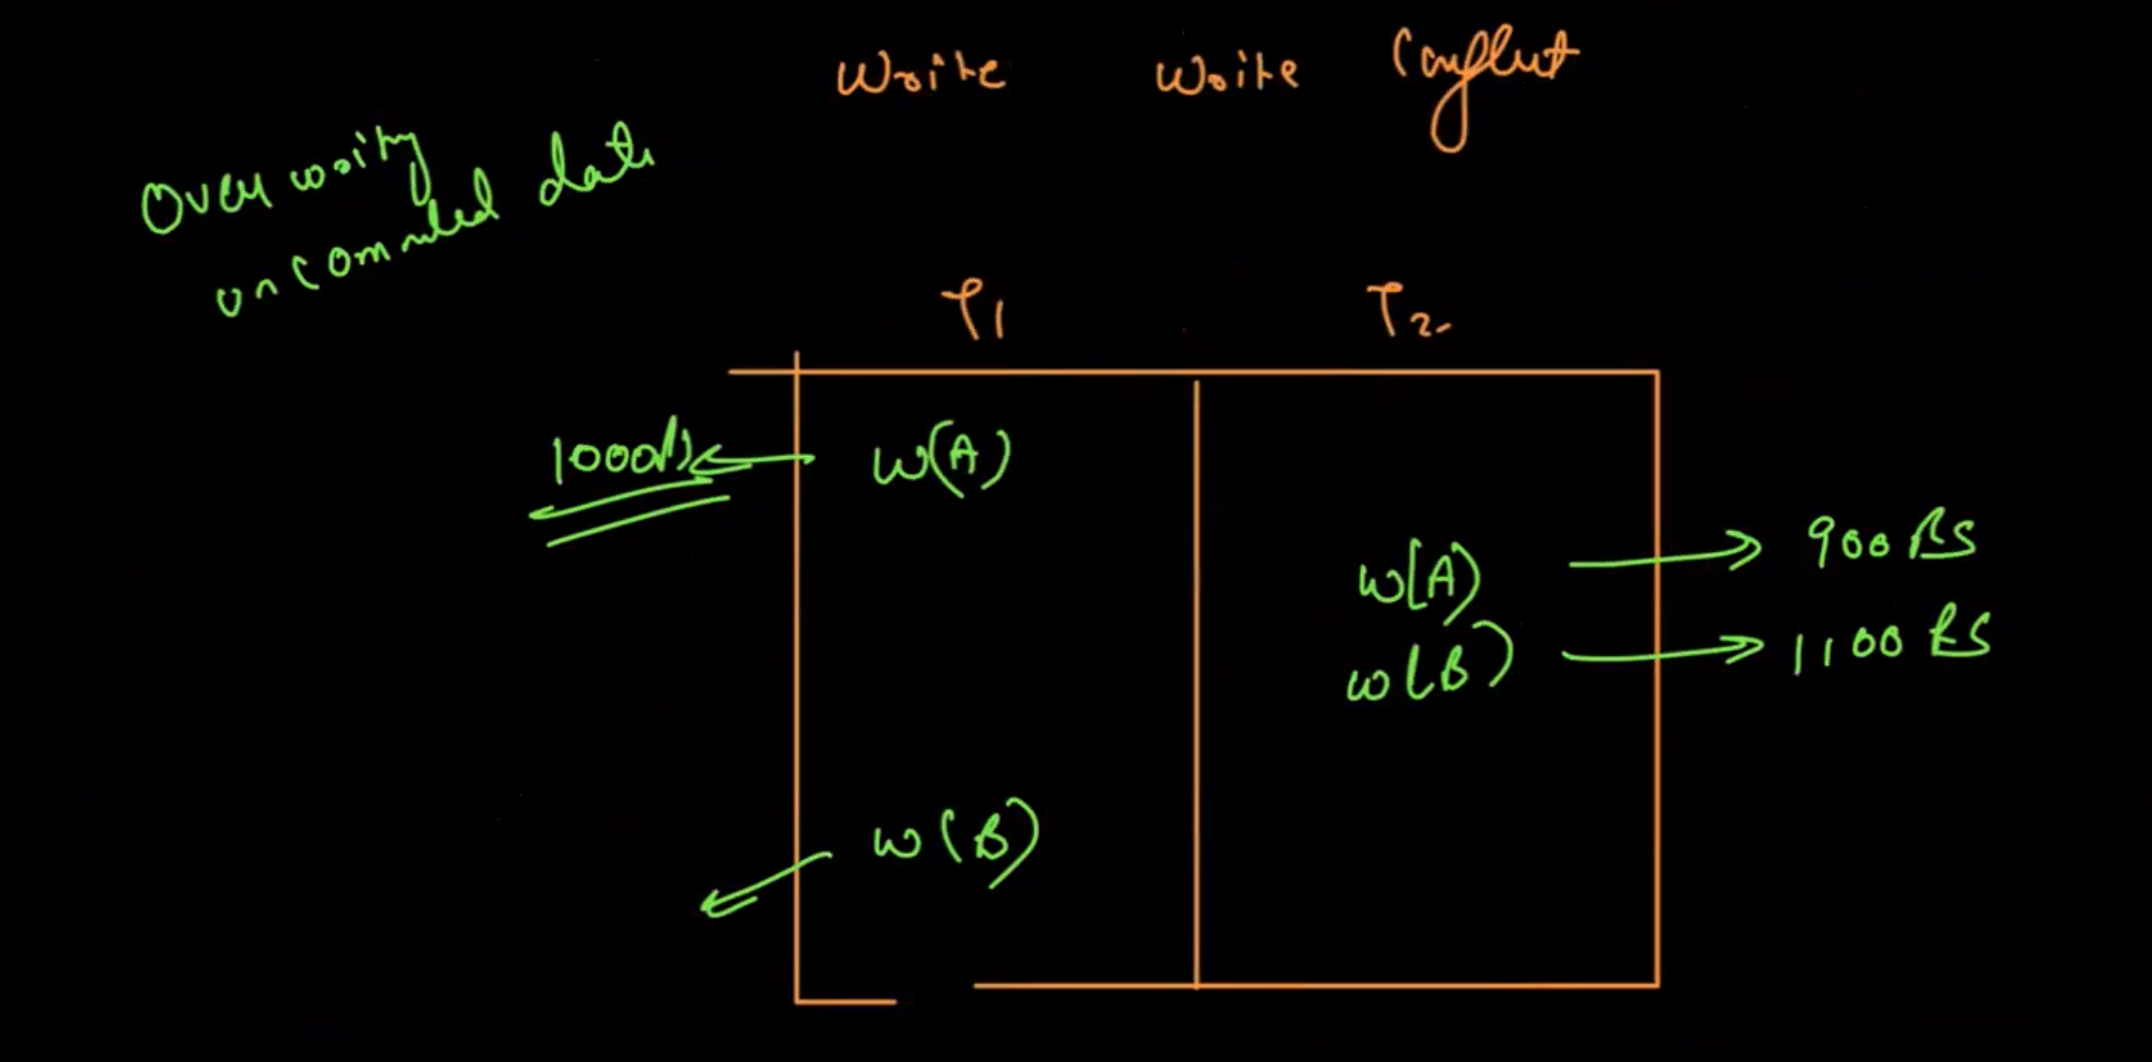 Write Write Conflict
Over writing
uncommited data
T1 T2
1000Rs W(A)
W(A) 900 RS
W(B) 1100 RS
W(B)